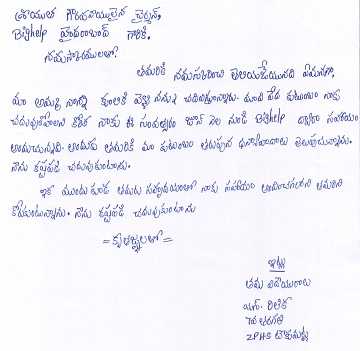 శ్రీయుత గౌరవనీయులైన చైర్మన్,
Bighelp హైదరాబాద్ గారికి.
నమస్కారములతో!
తమరికి నమస్కరించి తెలియజేయునది ఏమనగా,
మా అమ్మ నాన్న కూలికి వెళ్లి నన్ను చదివిస్తున్నారు. మాది పేద కుటుంబం నాకు
చదువుకోవాలని కోరిక నాకు ఈ సంవత్సరం జూన్ నెల నుండి Bighelp ద్వారా సహాయం
అందుచున్నది. అందుకు తమరికి మా కుటుంబం తరుపున ధన్యవాదాలు తెలుపుచున్నాను.
నేను కష్టపడి చదువుకుంటాను.
ఇక ముందు కూడ తమరు సహృదయంతో నాకు సహాయం అందించగలరని తమరిని
కోరుకుంటున్నాను. నేను కష్టపడి చదువుకుంటాను
= కృతజ్ఞతలతో =
ఇట్లు
తమ విధేయురాలు
యస్.
7వ తరగతి
ZPHS